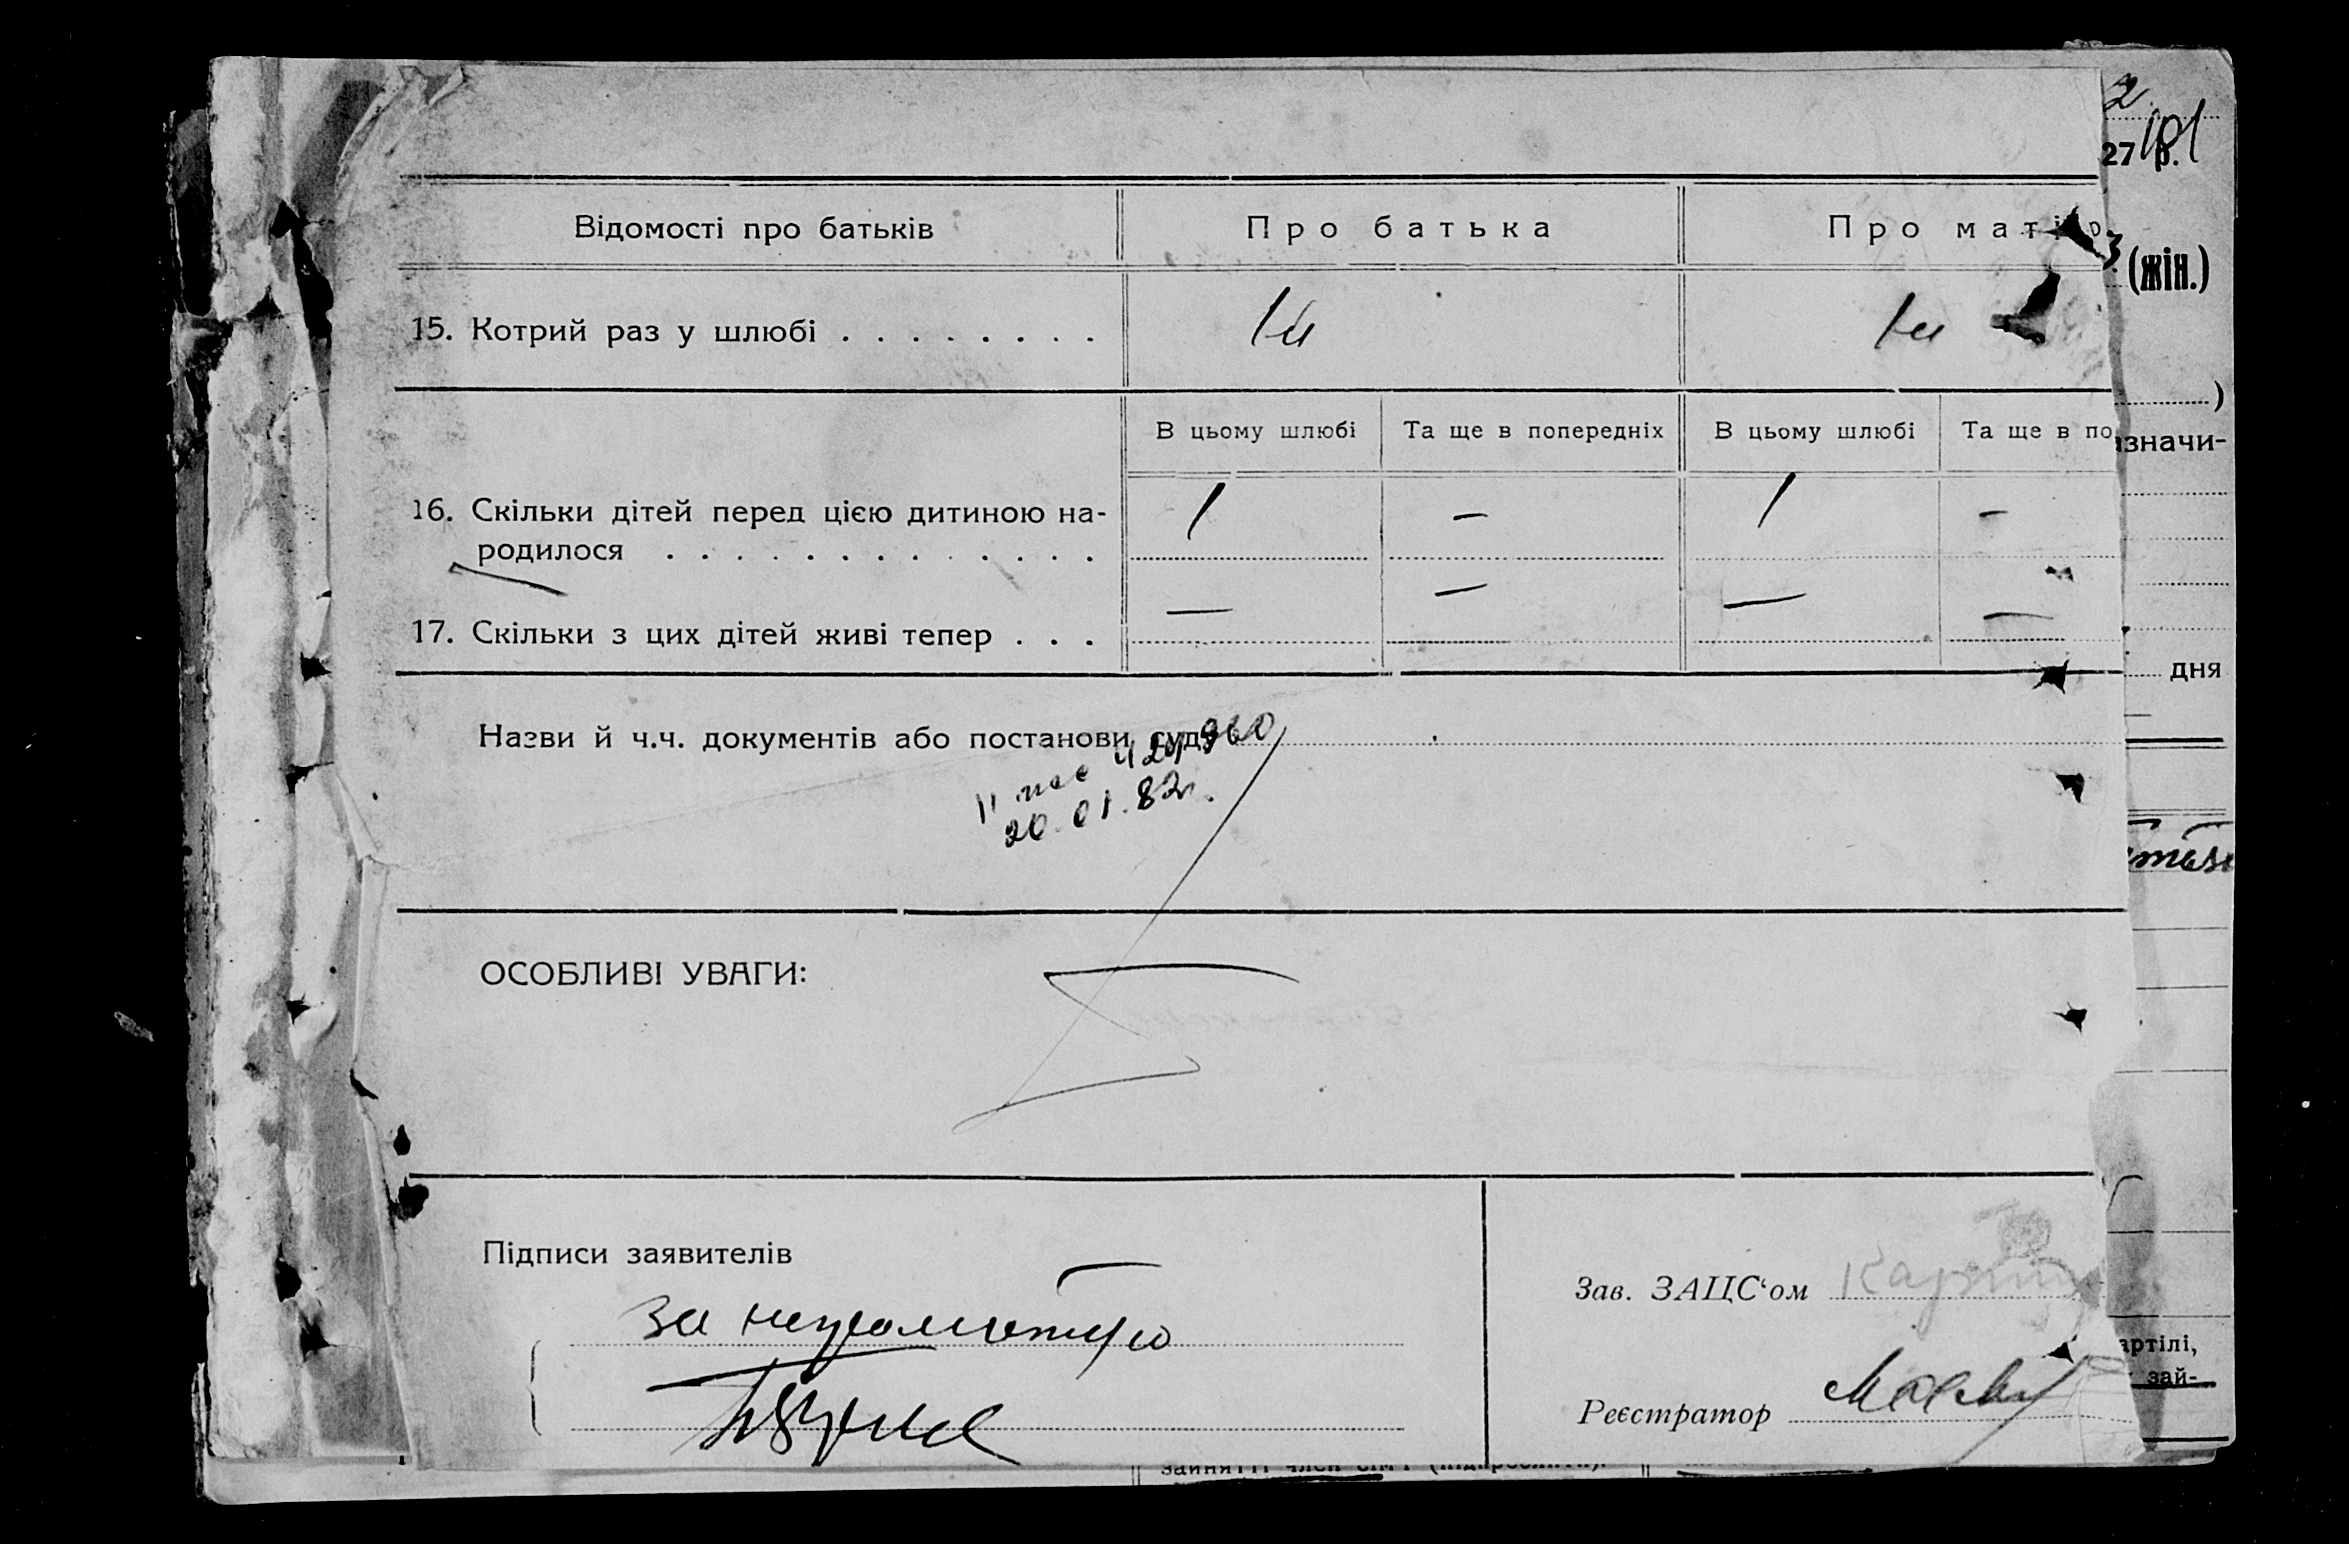 2
27 р. 101
Відомості про батьків
Про батька
Про матір
(жін.)
15. Котрий раз у шлюбі . . . . . . . .
1й
1й
)
В цьому шлюбі
Та ще в попередніх
В цьому шлюбі
Та ще в по
значи-
16. Скільки дітей перед цією дитиною на-
родилося . . . . . . . . . . . . .
1
—
1
—
17. Скільки з цих дітей живі тепер . . .
—
—
—
—
дня
Назви й ч.ч. документів або постанови суду
20.01.82г.
ОСОБЛИВІ УВАГИ:
Підписи заявителів
За неграмотную
Зав. ЗАЦС‘ом
Реєстратор
артілі,
зай-
зайнятті член сім'ї (підкреслити).